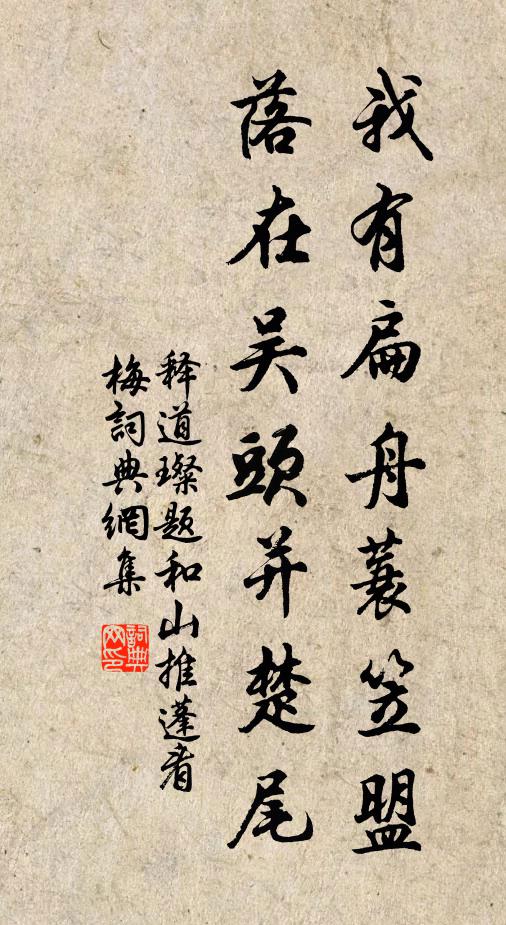 我有扁舟蓑笠盟
落在吴頭并楚尾
释道璨题和山推蓬看
梅詞典網集
詞典
网印